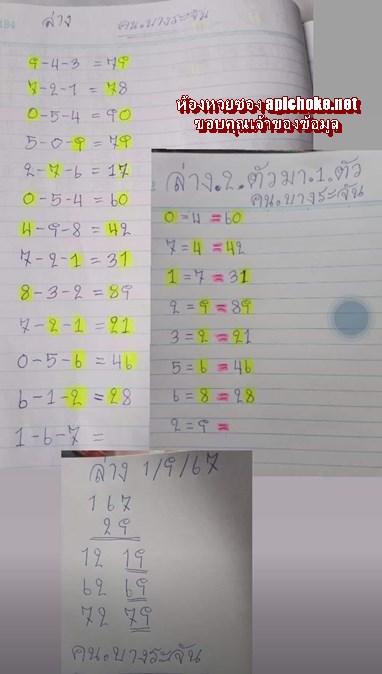 194
ล่าง คน.บางระจัน
9-4-3 = 79
7-2-1 = 78
0-5-4 = 90
5-0-9 = 79
2-7-6 = 17
0-5-4 = 60
4-9-8 = 42
7-2-1 = 31
8-3-2 = 89
7-2-1 = 21
0-5-6 = 46
6-1-2 = 28
1-6-7 =
ห้องหวยซอง apichoke.net
ขอบคุณเจ้าของข้อมูล
ล่าง.2.ตัวมา.1.ตัว
คน.บางระจัน
0=4=60
7=4=42
1=7=31
2=9=89
3=2=21
5=6=46
6=8=28
2=9=
ล่าง 1/9/67
167
29
12 19
62 69
72 79
คน.บางระจัน